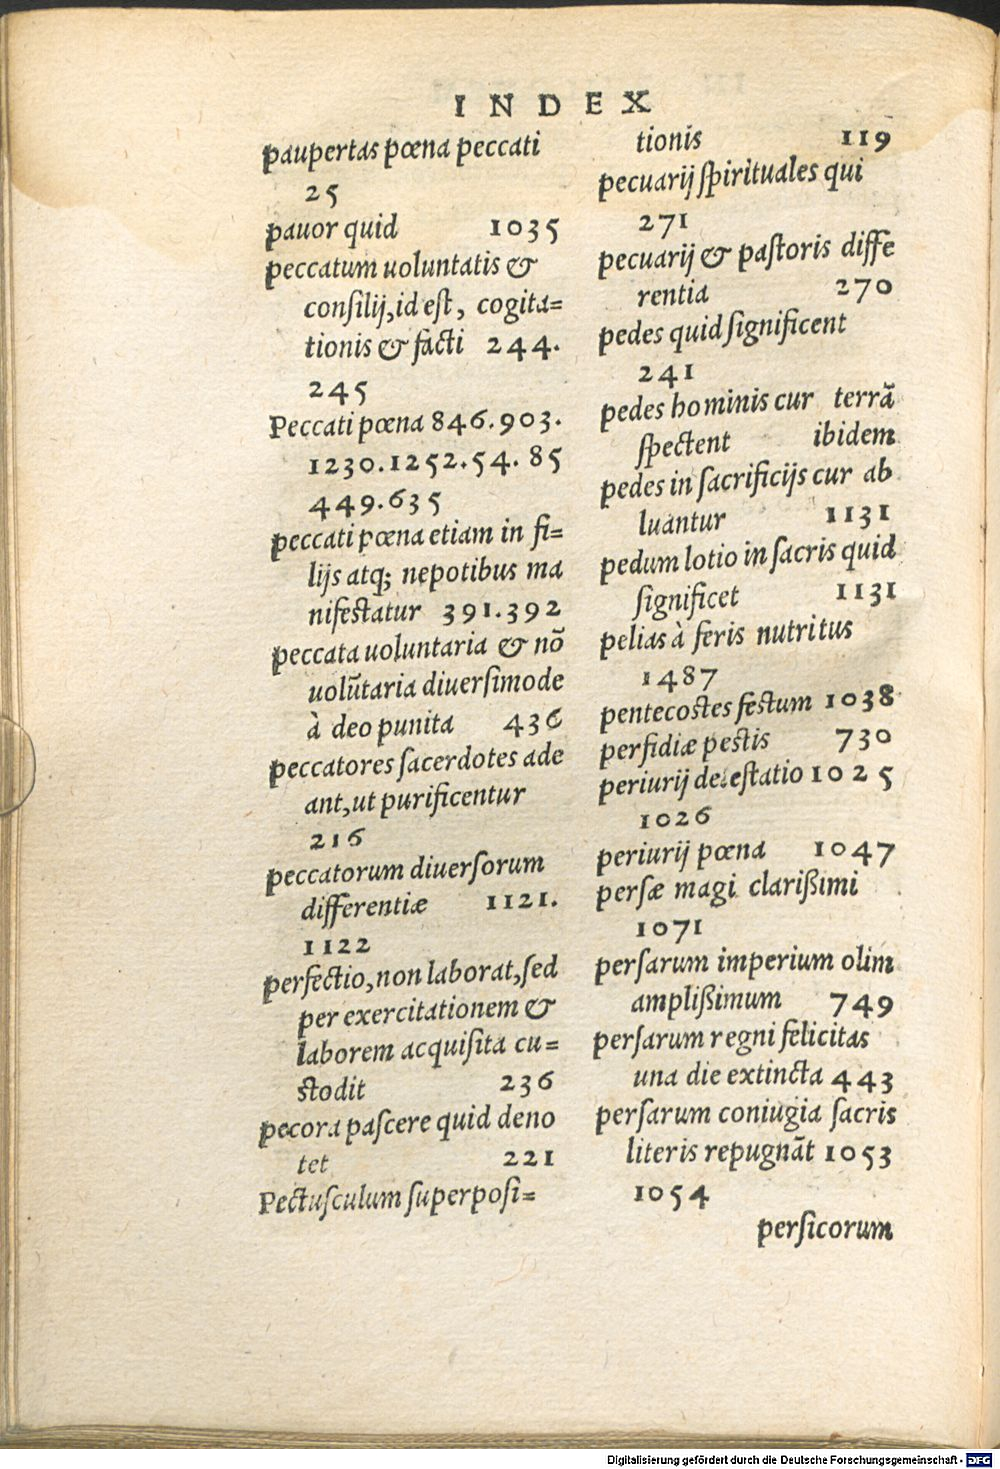 INDEX
paupertas pœna peccati
25
pauor quid 1035
peccatum uoluntatis &
consilij, id est, cogita=
tionis & facti 244.
245
Peccati pœna 846.903.
1230.1252.54. 85
449.635
peccati pœna etiam in fi=
lijs atq; nepotibus ma
nifestatur 391.392
peccata uoluntaria & nō
uolūtaria diuersimode
à deo punita 436
peccatores sacerdotes ade
ant, ut purificentur
216
peccatorum diuersorum
differentiæ 1121.
1122
perfectio, non laborat, sed
per exercitationem &
laborem acquisita cu=
stodit 236
pecora pascere quid deno
tet 221
Pectusculum superposi=
tionis 119
pecuarij spirituales qui
271
pecuarij & pastoris diffe
rentia 270
pedes quid significent
241
pedes hominis cur terrā
spectent ibidem
pedes in sacrificijs cur ab
luantur 1131
pedum lotio in sacris quid
significet 1131
pelias à feris nutritus
1487
pentecostes festum 1038
perfidiæ pestis 730
periurij detestatio 1025
1026
periurij pœna 1047
persæ magi clarißimi
1071
persarum imperium olim
amplißimum 749
persarum regni felicitas
una die extincta 443
persarum coniugia sacris
literis repugnāt 1053
1054
persicorum
Digitalisierung gefördert durch die Deutsche Forschungsgemeinschaft - DFG